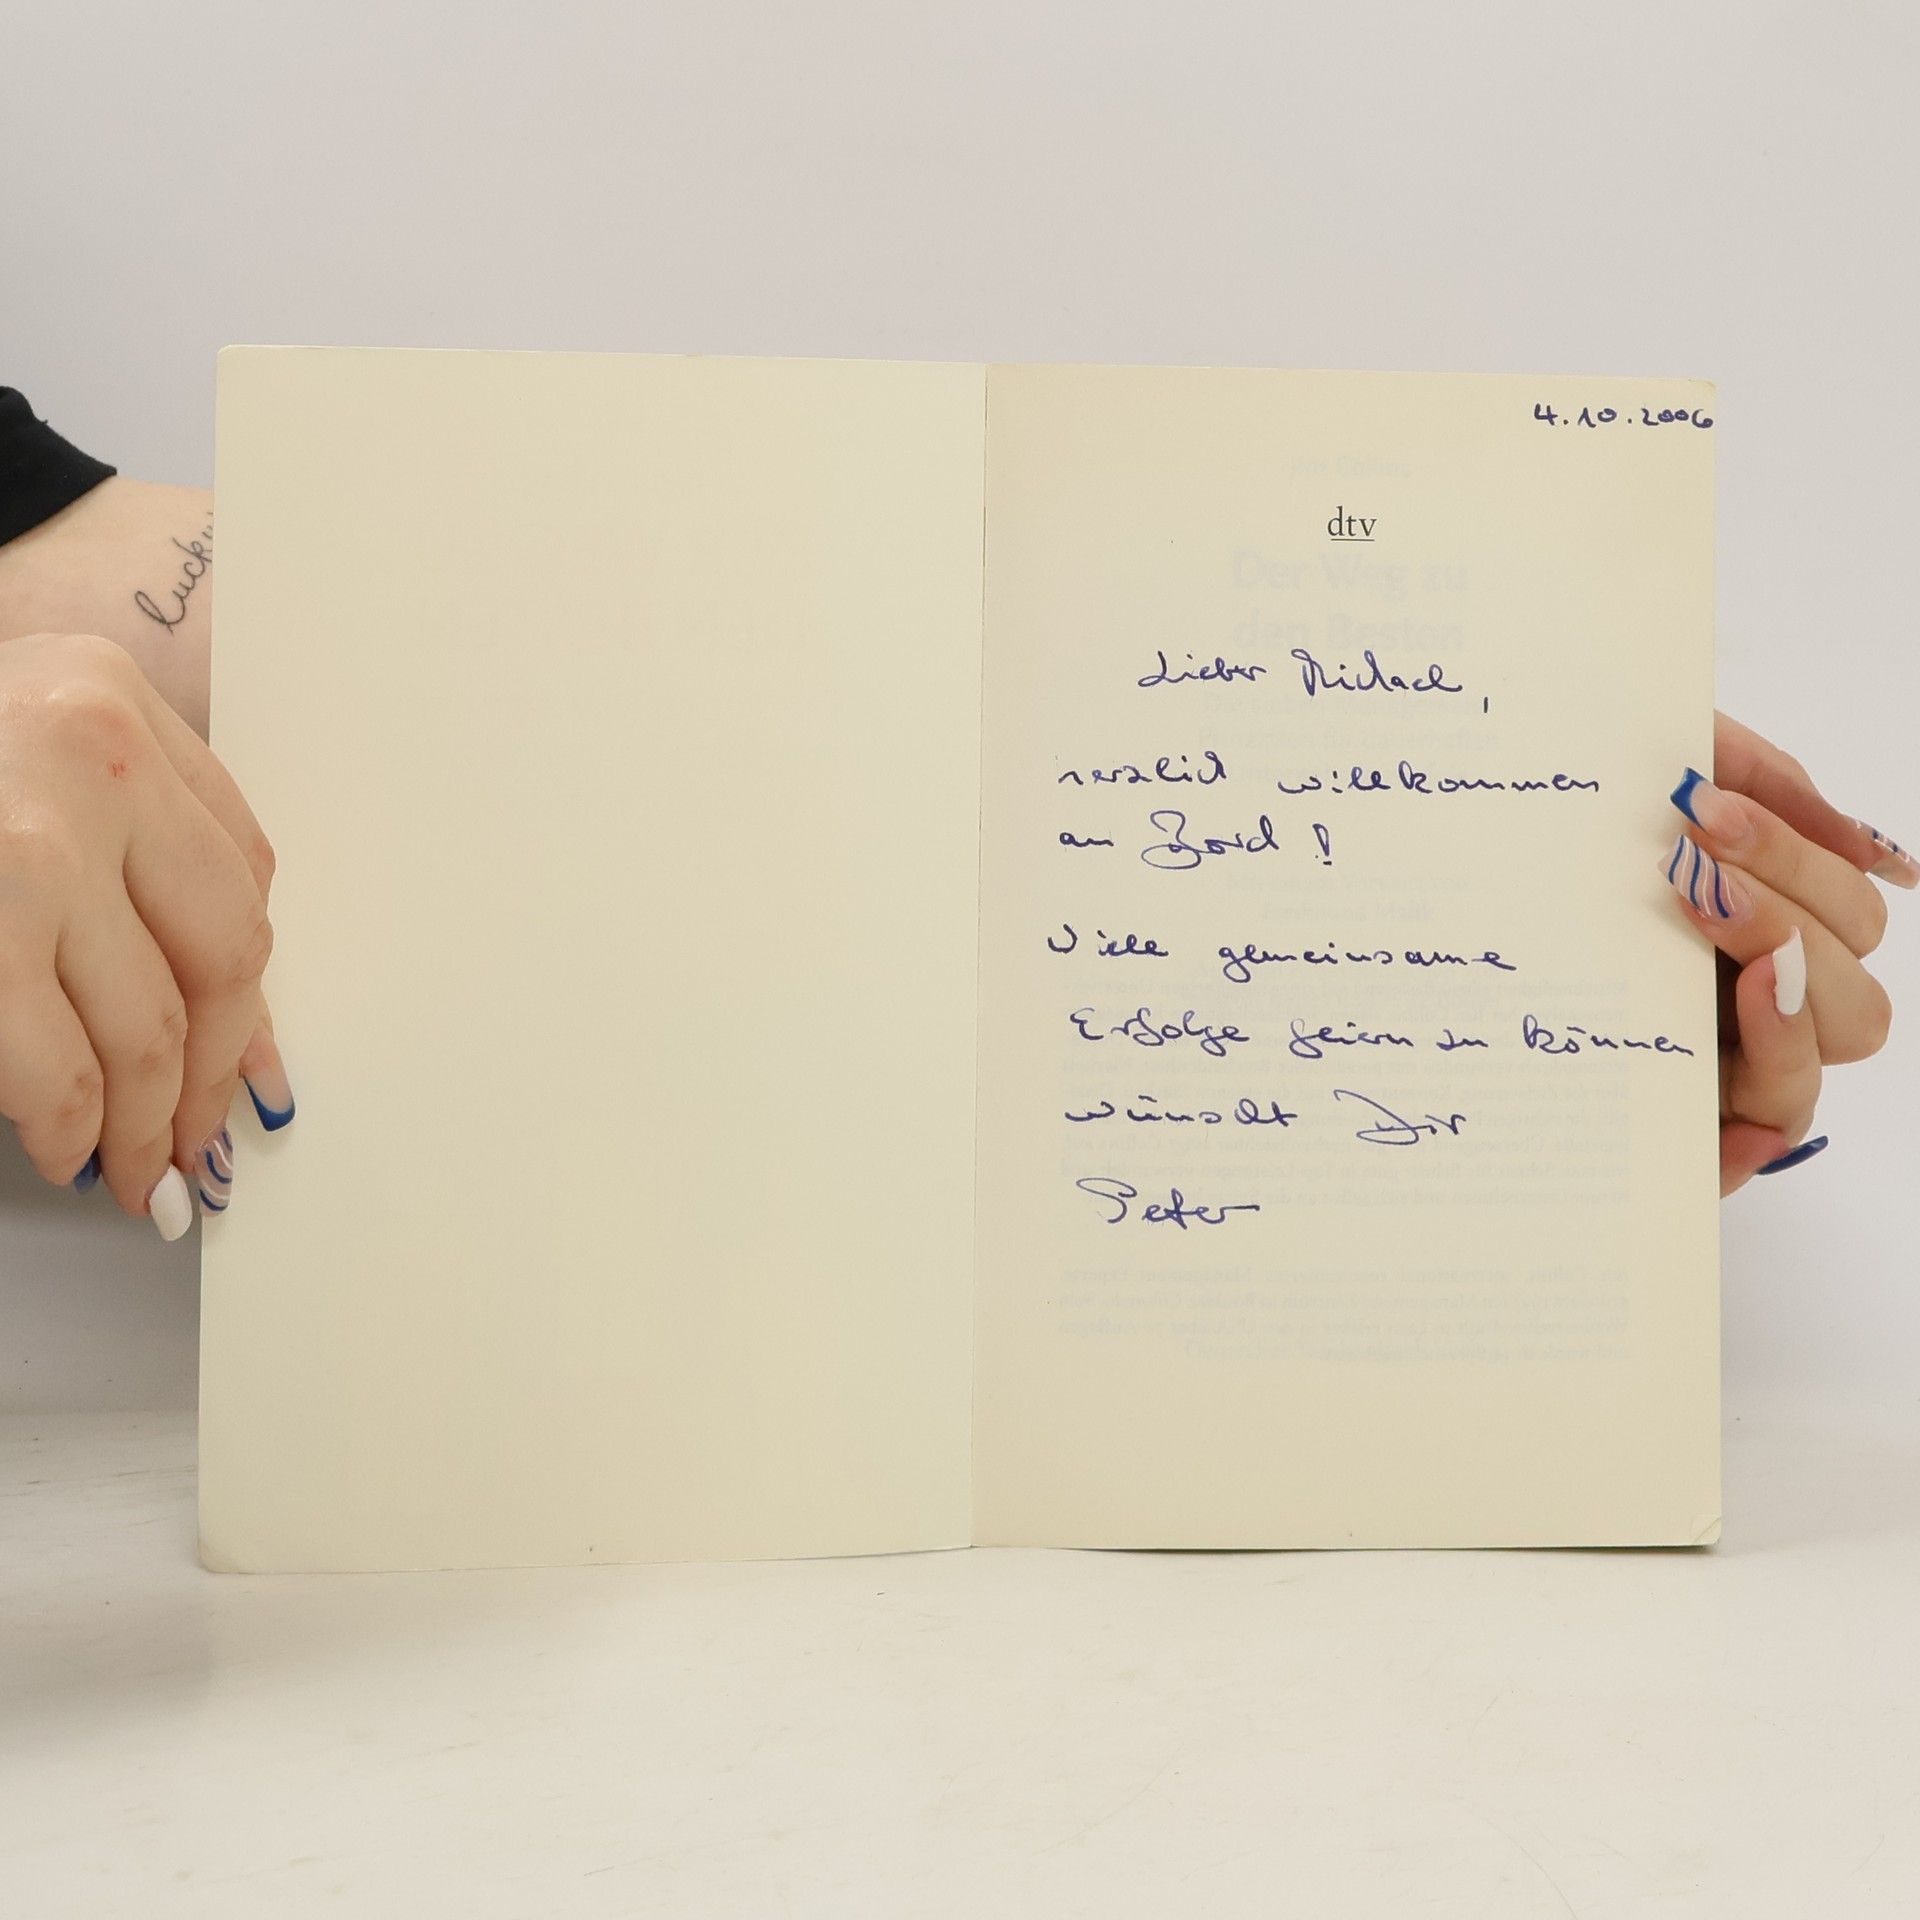 lucky
4.10.2006
dtv
Der Weg zu
den Besten
Lieber Michael,
herzlich willkommen
an Bord!
Viele gemeinsame
Erfolge feiern zu können
wünscht Dir
Peter